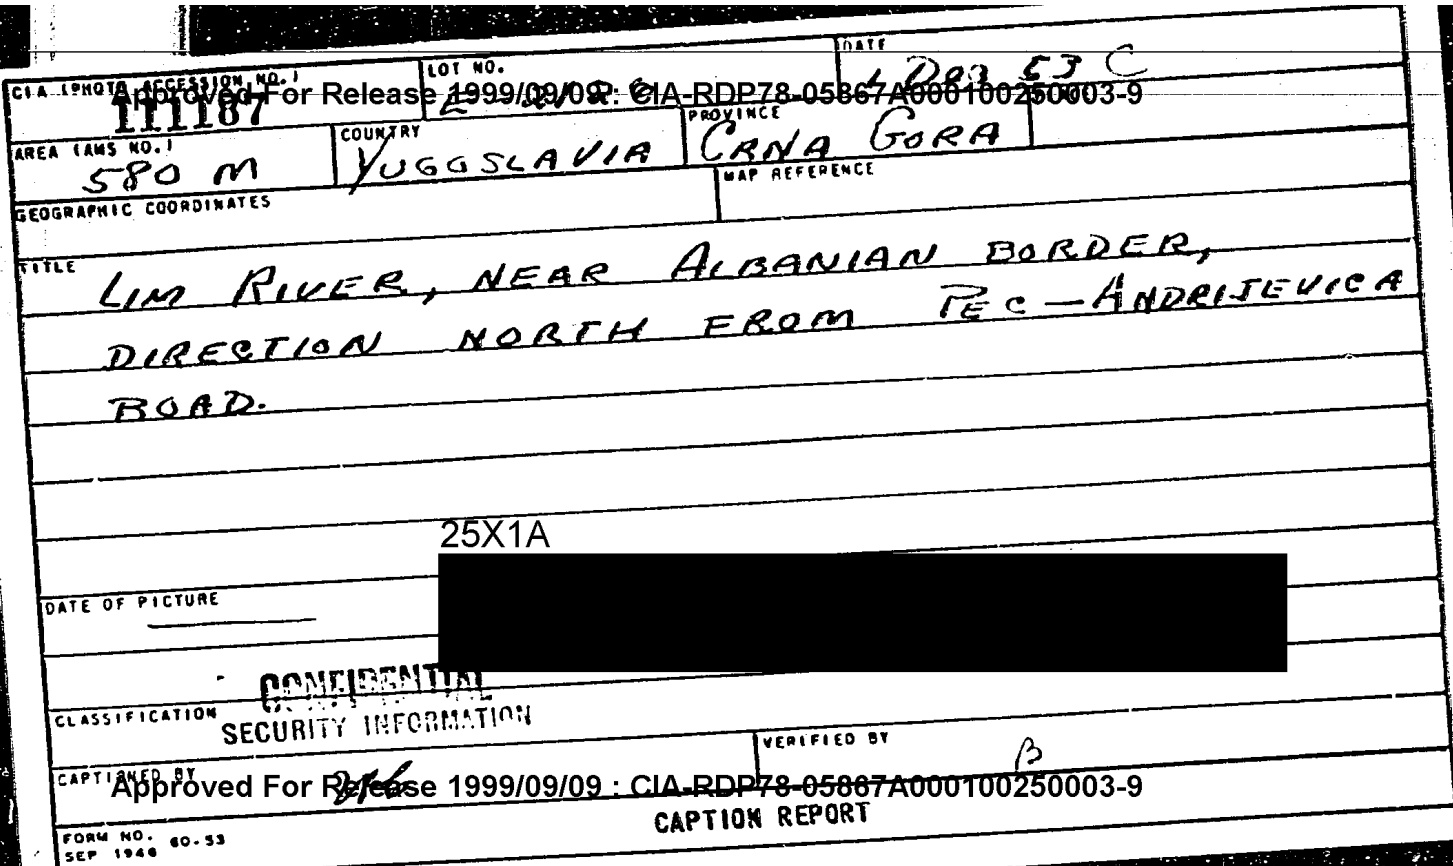 CIA (PHOTO ACCESSION NO.)
LOT NO.
DATE
Dec 53 C
Approved For Release 1999/09/09 : CIA-RDP78-05867A000100250003-9
111187
AREA (AMS NO.)
580 M
COUNTRY
YUGOSLAVIA
PROVINCE
CRNA GORA
GEOGRAPHIC COORDINATES
MAP REFERENCE
TITLE
LIM RIVER, NEAR ALBANIAN BORDER,
DIRECTION NORTH FROM PEC - ANDRIJEVICA
ROAD.
25X1A
DATE OF PICTURE
CONFIDENTIAL
CLASSIFICATION
SECURITY INFORMATION
VERIFIED BY
B
CAPTIONED BY
Approved For Release 1999/09/09 : CIA-RDP78-05867A000100250003-9
CAPTION REPORT
FORM NO. 60-53
SEP 1946